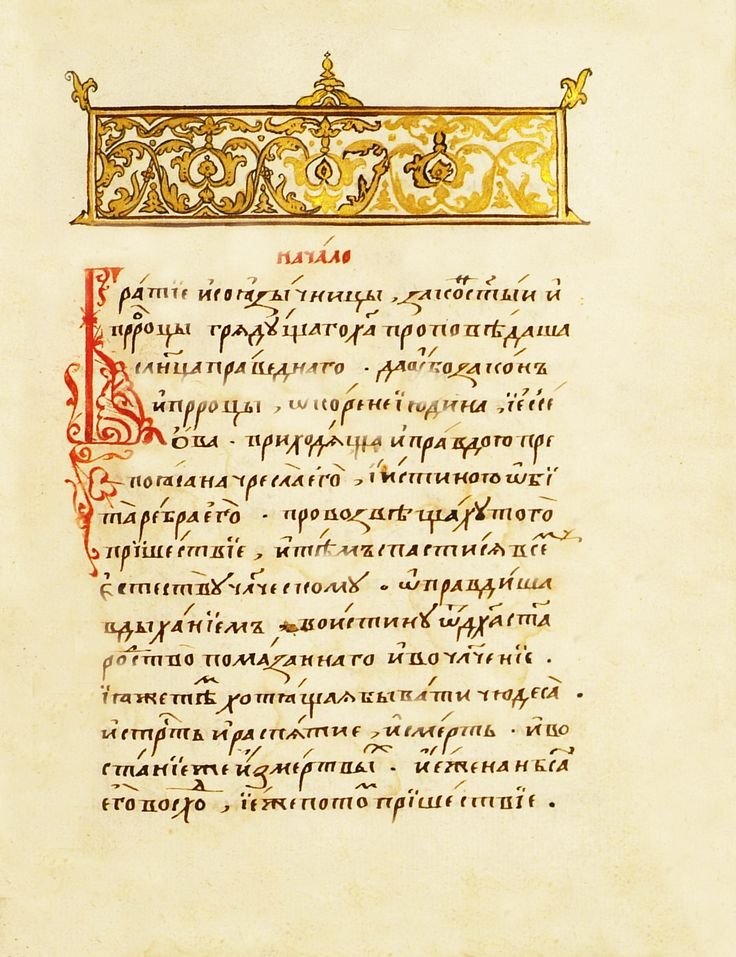 начало
Братїе и҆сослзы́чницы, закоⷩ҇стїи и҆
прⷪ҇роцы грядꙋ́щагоха̑ проповѣ́даша
слн҃цаправеднаго · даѹ҆́бозаконъ
и҆прⷪ҇роцы, ѿко́ренеї҆ю́дина, ї҆є҆ссе
о́ва · приходѧ́ща и҆правдою пре
поѧсаначресла̀его̀, ї҆и҆стиною ѡ҆бї
та̀ребраего̀ · провозвѣща́хꙋтого̀
прїше́ствїе, и҆тѣ́мъспастисѧвсеⷨ҇
є҆стествꙋ̀ чл҃ческомꙋ · ѿправдиша
вдыха́нїемъ вои́стинꙋ ѿдх҃аст҃а
рⷪ҇ство помазаннаго и҆вочл҃че́нїе ·
ї҆ꙗ҆жетѣⷨ҇ хотѧ́щаѧбыва́ти чюдеса̀ ·
и҆стрⷭ҇ть и҆распѧ́тие, и҆сме́рть · и҆во
ста́нїеже и҆зме́ртвыⷯ · и҆є҆́женанб҃са̀
его̀ восхоⷣ, ї҆є҆́жепотоⷨ҇ прїше́ствїе ·